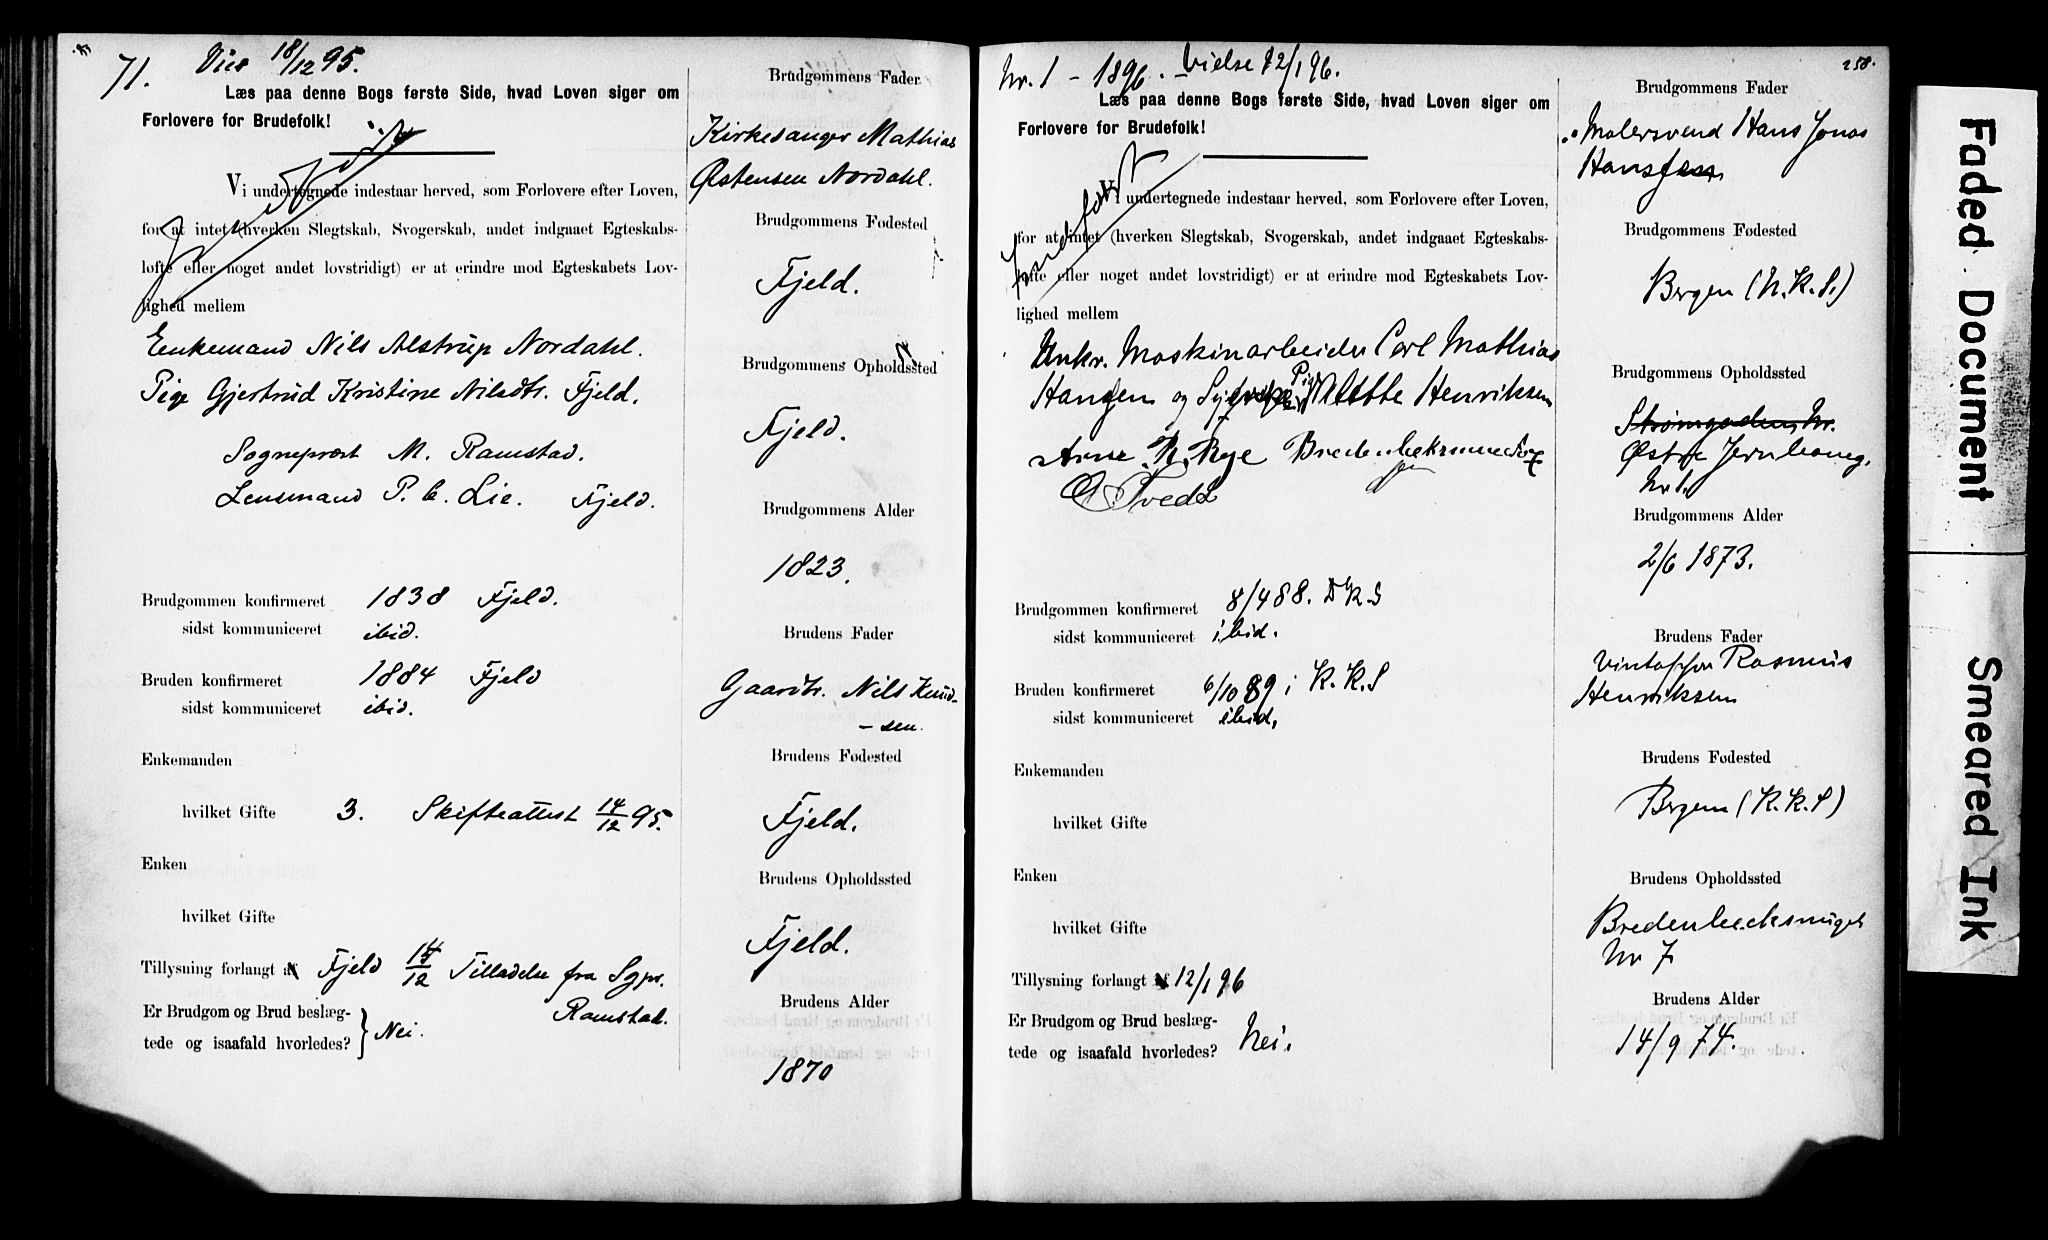 71. Vies 18/12 95.
Læs paa denne Bogs første Side, hvad Loven siger om
Forlovere for Brudefolk!
Vi undertegnede indestaar herved, som Forlovere efter Loven,
for at intet (hverken Slegtskab, Svogerskab, andet indgaaet Egteskabs-
løfte eller noget andet lovstridigt) er at erindre mod Egteskabets Lov-
lighed mellem
Enkemand Nils Alstrup Nordahl.
Pige Gjertrud Kristine Nilsdtr. Fjeld.
Sogneprest M. Ramstad.
Lensmand P. C. Lie. Fjeld.
Brudgommen konfirmeret 1838 Fjeld.
sidst kommuniceret ibid.
Bruden konfirmeret 1884 Fjeld
sidst kommuniceret ibid.
Enkemanden
hvilket Gifte 3. Skifteattest 14/12 95.
Enken
hvilket Gifte
Tillysning forlangt af Fjeld 14/12 Tilladelse fra Sgpr.
Ramstad.
Er Brudgom og Brud beslæg-
tede og isaafald hvorledes? } Nei.
Brudgommens Fader
Kirkesanger Mathias
Østensen Nordahl.
Brudgommens Fødested
Fjeld.
Brudgommens Opholdssted
Fjeld.
Brudgommens Alder
1823.
Brudens Fader
Gaardbr. Nils Knud-
- sen.
Brudens Fødested
Fjeld.
Brudens Opholdssted
Fjeld.
Brudens Alder
1870
258.
Nr. 1 - 1896. Vielse 12/1 96.
Læs paa denne Bogs første Side, hvad Loven siger om
Forlovere for Brudefolk!
Vi undertegnede indestaar herved, som Forlovere efter Loven,
for at intet (hverken Slegtskab, Svogerskab, andet indgaaet Egteskabs-
løfte eller noget andet lovstridigt) er at erindre mod Egteskabets Lov-
lighed mellem
Unkr. Maskinarbeider Carl Mathias
Hansen og Pige Henriksen
Arne R. Rye
O Tvedt
Brudgommen konfirmeret 8/4 88. D K. S
sidst kommuniceret ibid.
Bruden konfirmeret 6/10 89 i K. K. S
sidst kommuniceret ibid.
Enkemanden
hvilket Gifte
Enken
hvilket Gifte
Tillysning forlangt af 12/1 96
Er Brudgom og Brud beslæg-
tede og isaafald hvorledes? Nei.
Brudgommens Fader
Malersvend Hans Jonas
Hansen
Brudgommens Fødested
Bergen (N. K. S.)
Brudgommens Opholdssted
Strømgaden Nr.
Østre Jernbaneg.
Nr 1.
Brudgommens Alder
2/6 1873.
Brudens Fader
Vintapper Rasmus
Henriksen
Brudens Fødested
Bergen (K. K. S)
Brudens Opholdssted
Bredenbecksmuget
Nr 7
Brudens Alder
14/9 74.
Faded Document
Smeared Ink